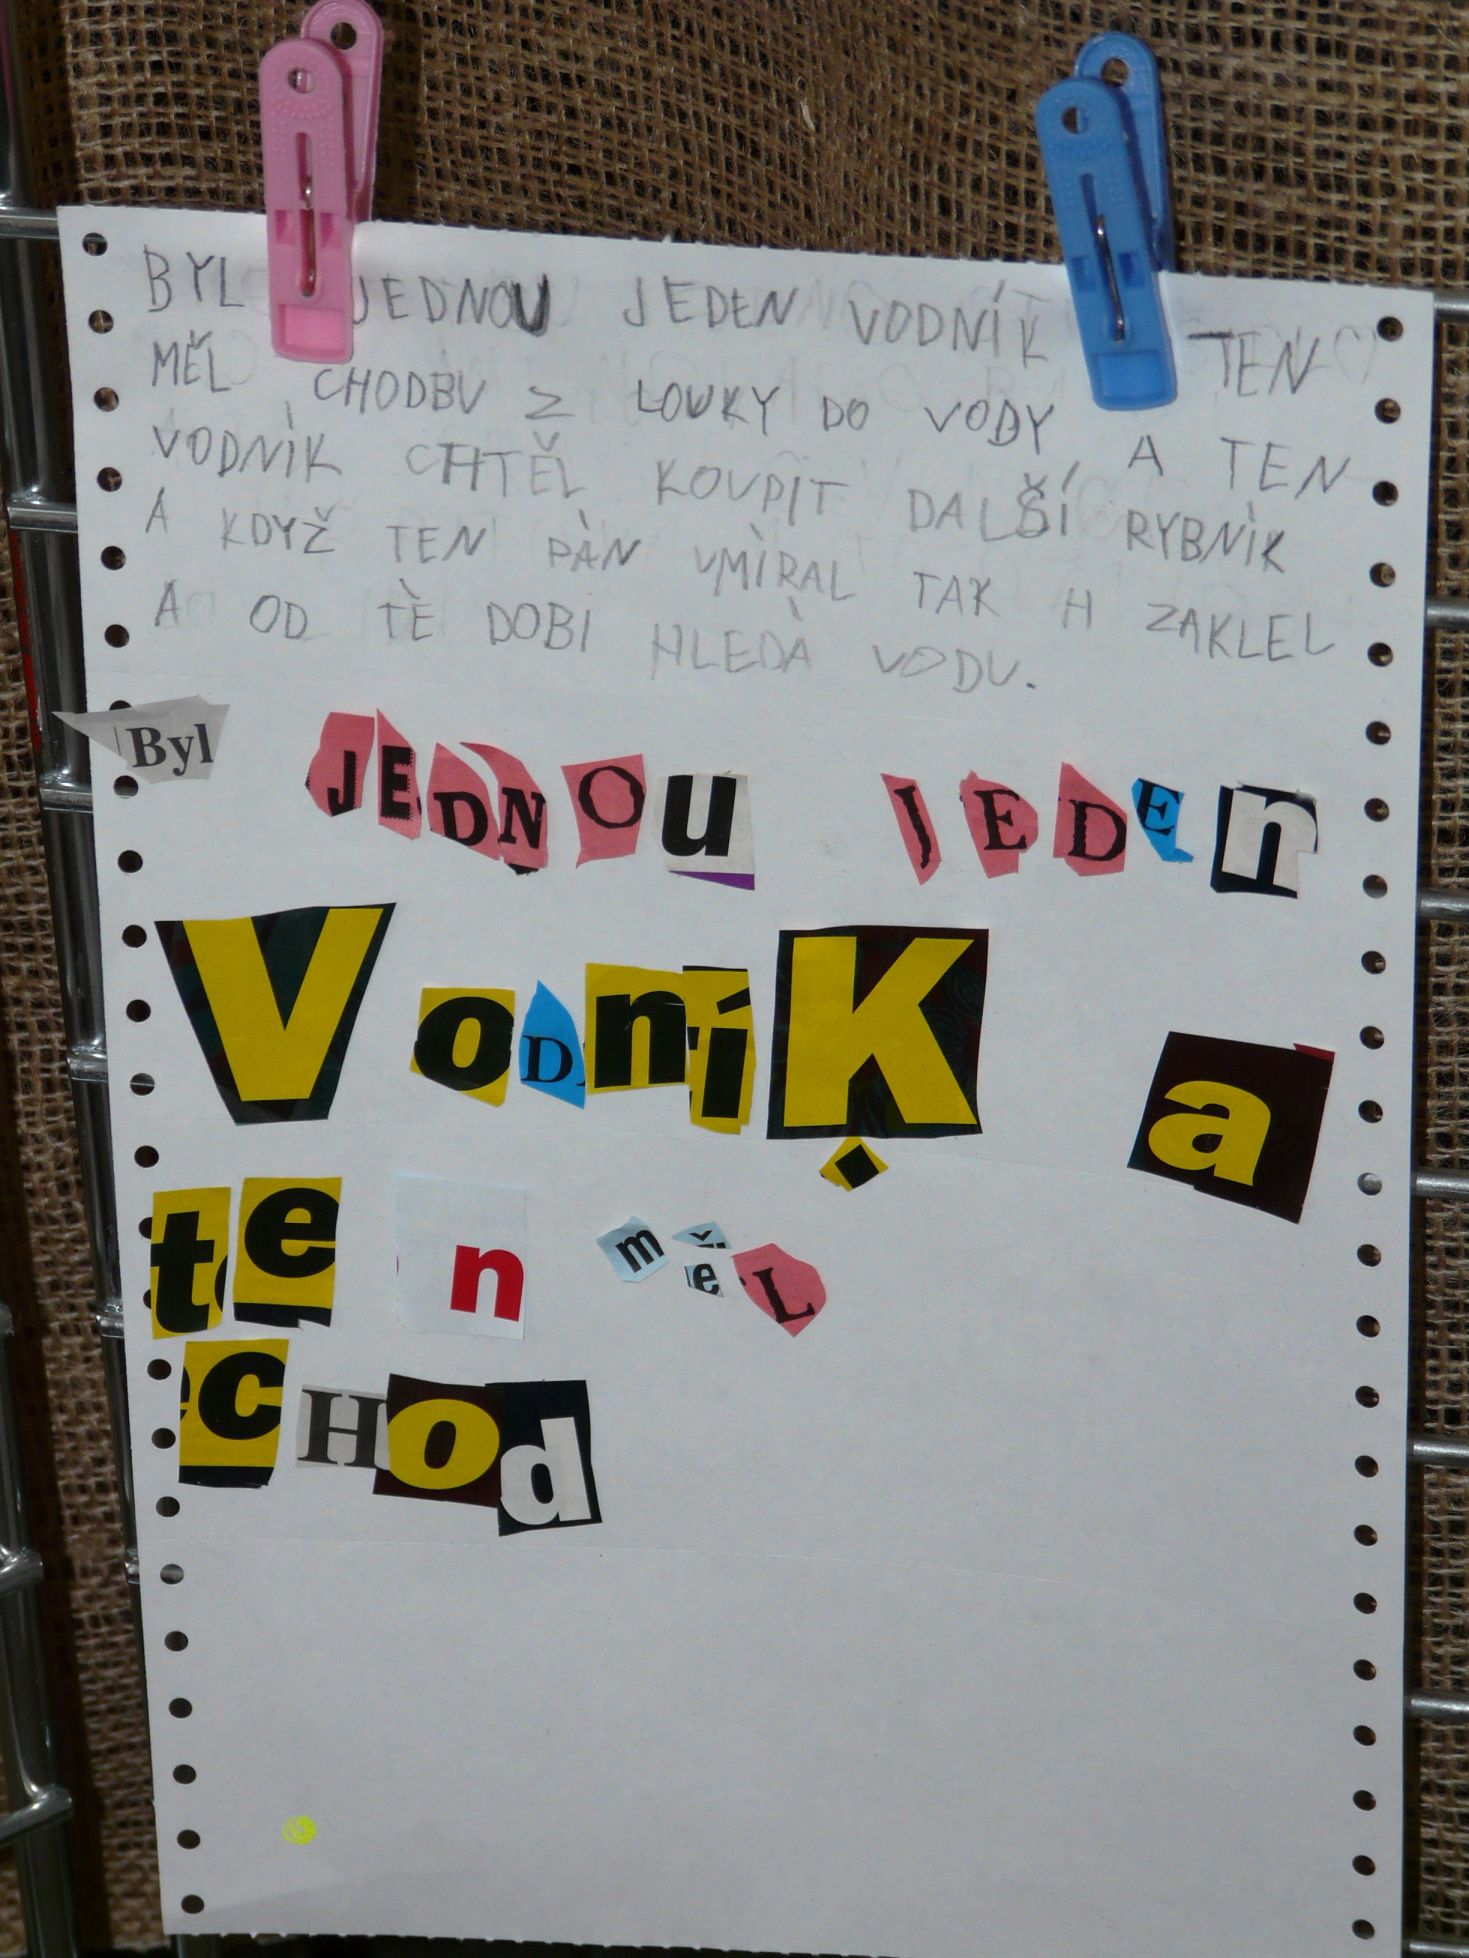 BYL JEDNOU JEDEN VODNÍK TEN
MĚL CHODBU Z LOUKY DO VODY A TEN
VODNÍK CHTĚL KOUPIT DALŠÍ RYBNÍK
A KDYŽ TEN PÁN UMÍRAL TAK H ZAKLEL
A OD TÈ DOBI HLEDÀ VODU.
Byl JEDNOU JEDEn
VoDníK. a
ten měL
cHod